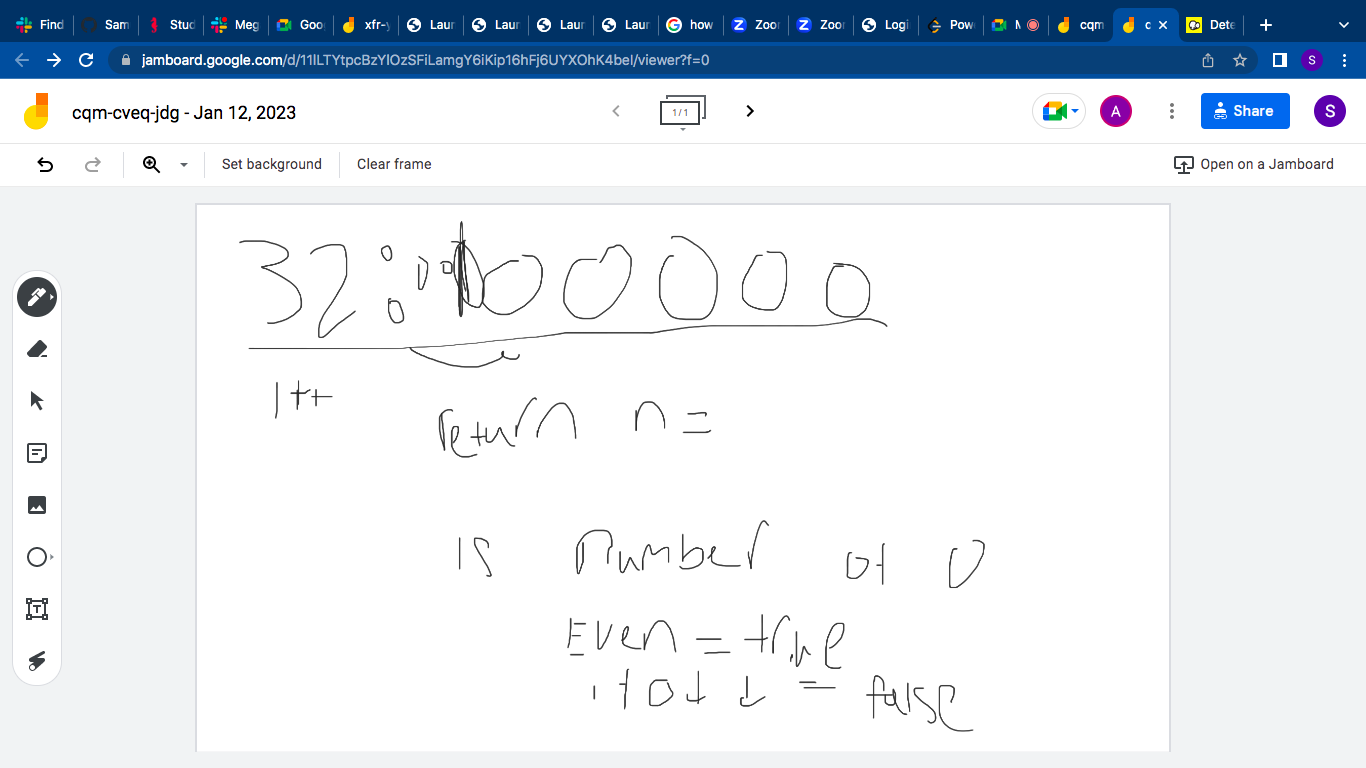 Find
Sam
Stud
Meg
Goo
xfr-y
Laur
Laur
Laur
Laur
how
Zoor
Zoor
Logi
Pow
M
cqm
c
Dete
jamboard.google.com/d/11lLTYtpcBzYlOzSFiLamgY6iKip16hFj6UYXOhK4beI/viewer?f=0
S
cqm-cveq-jdg - Jan 12, 2023
1/1
A
Share
S
Set background
Clear frame
Open on a Jamboard
32:
00000
1++
return n =
is number of 0
Even = true
= false